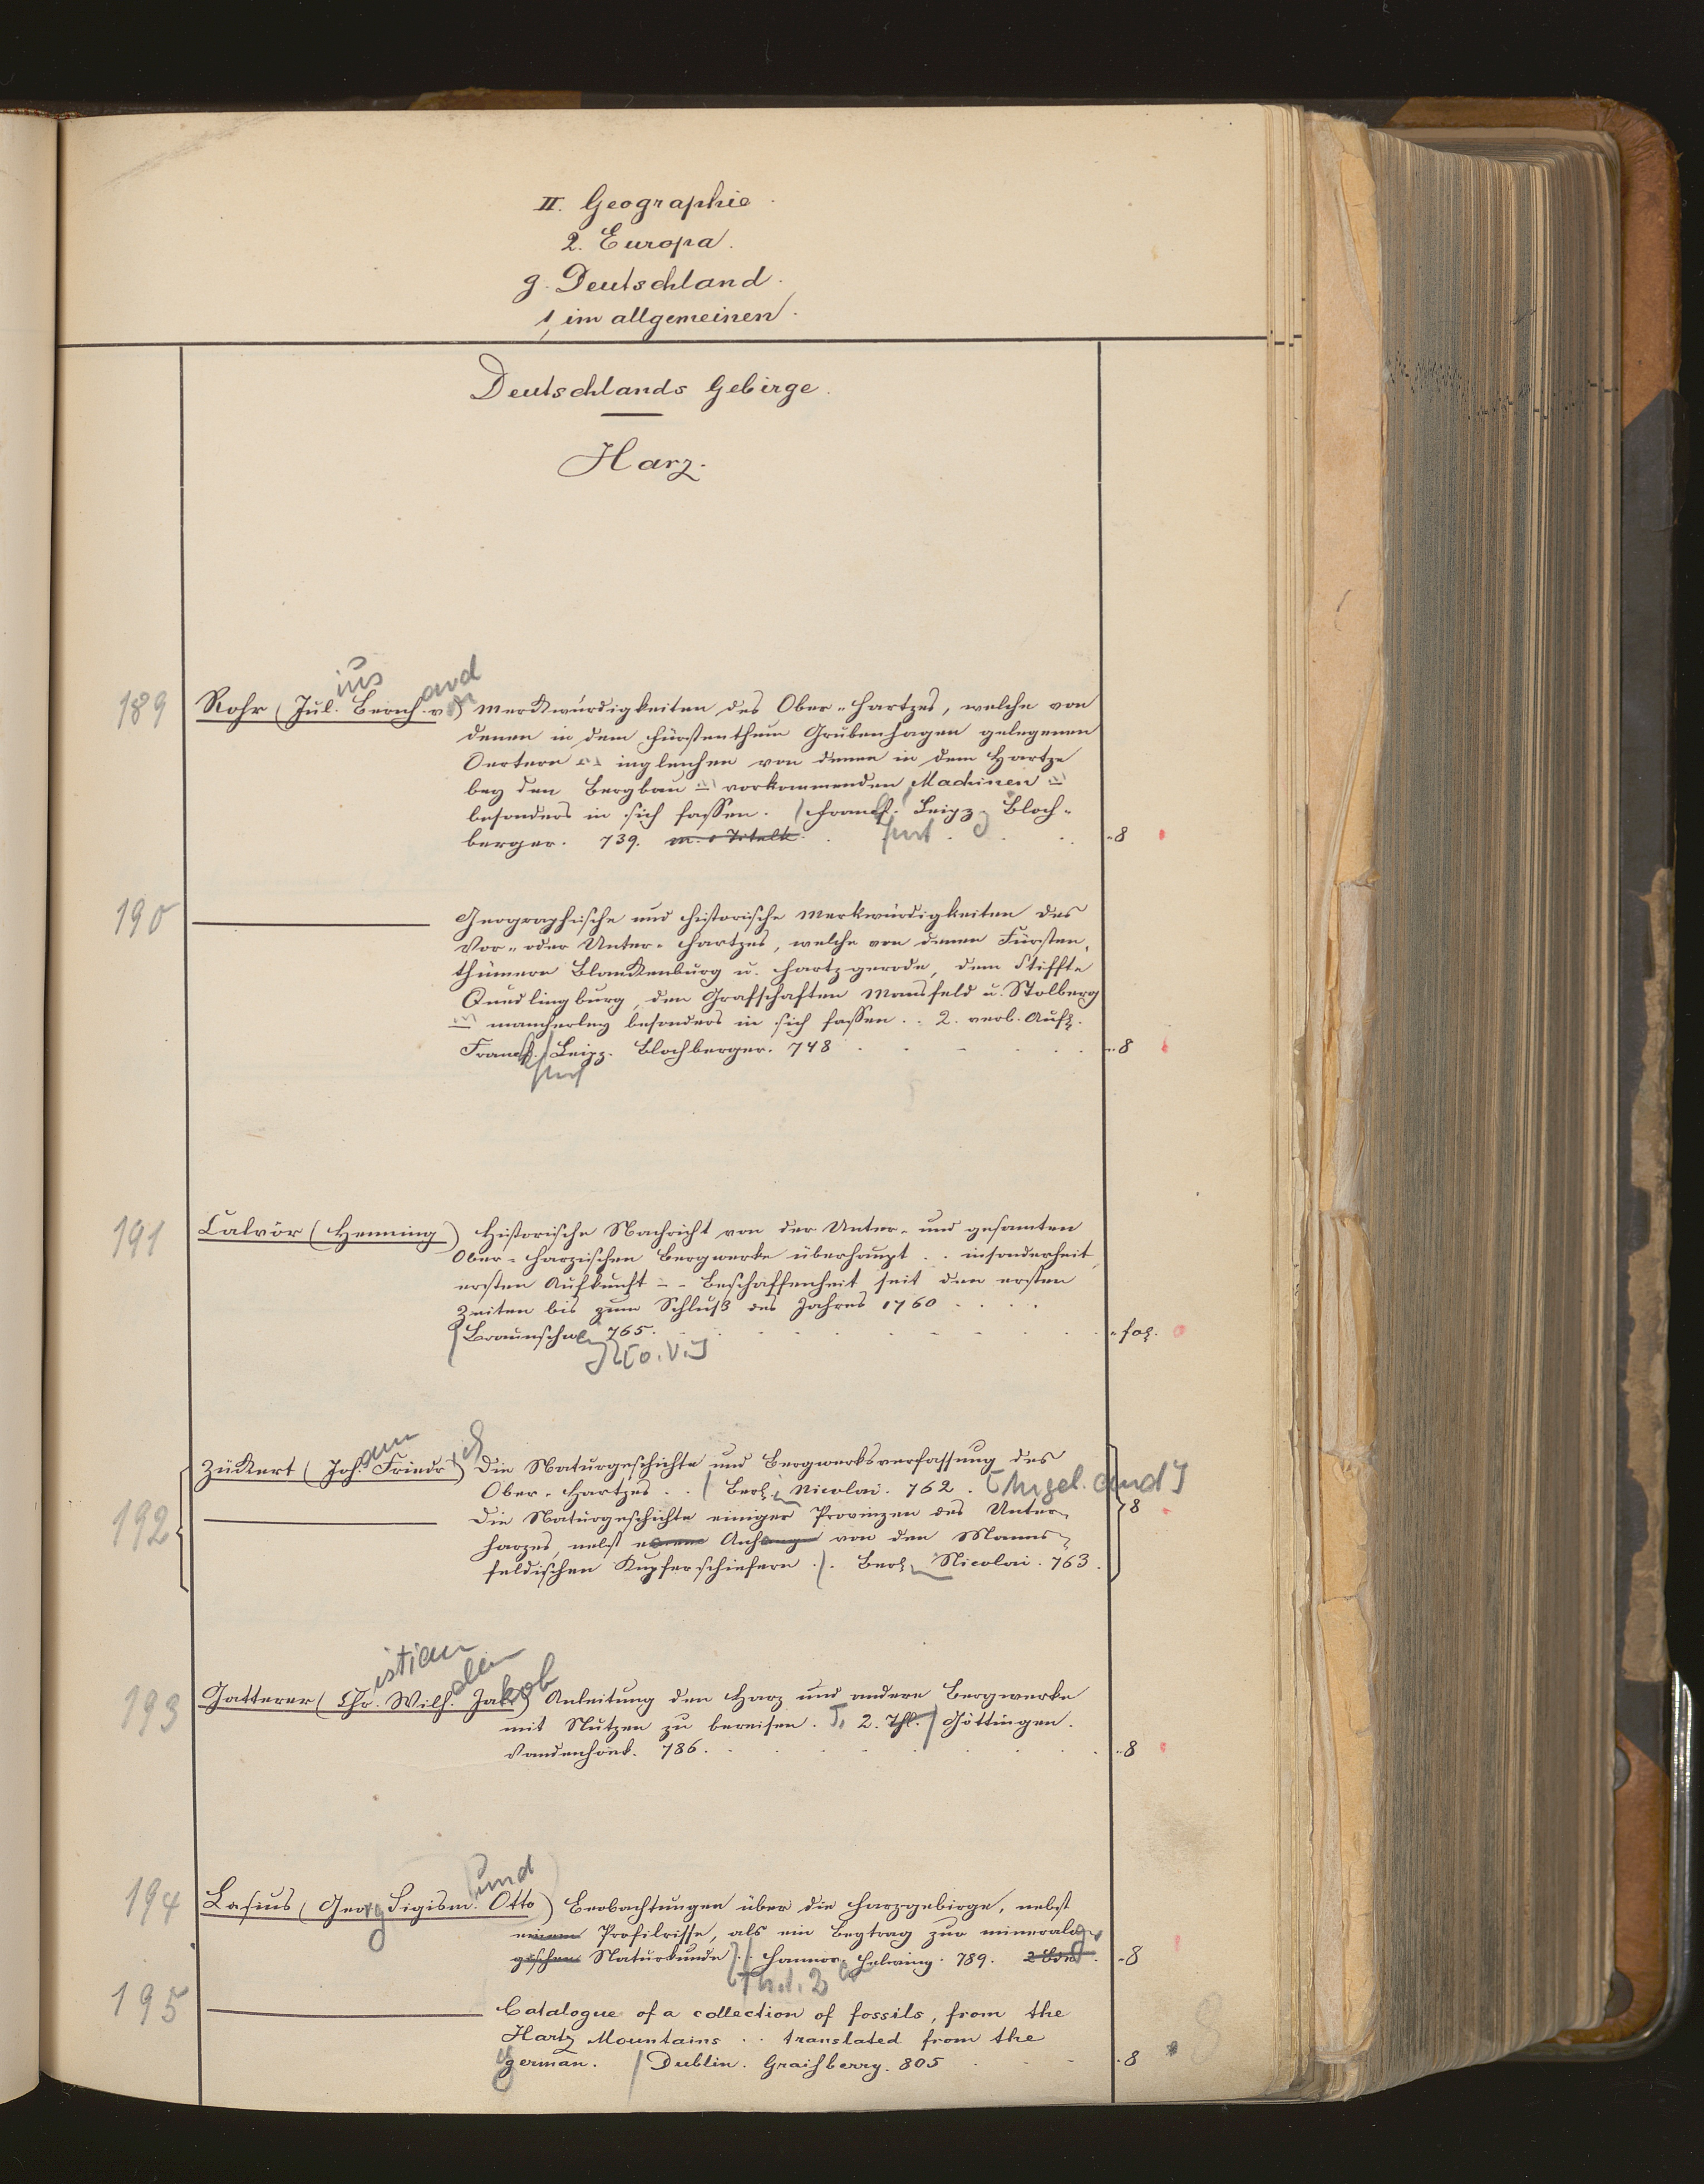 II. Geographie.
2. Europa.
g. Deutschland.
1, im allgemeinen.
Deutschlands Gebirge.
Harz.
ius ard
189 Rohr (Jul. Bernh. v.) Merkwürdigkeiten des Ober-Hartzes, welche von
denen in dem Fürstenthum Grubenhagen gelegenen
Oertern ingleichen von denen in dem Hartze
bey den Bergbau vorkommenden Machinen
besonders in sich fassen. Franckf. Leipz. Bloch-
berger. 739. 8
furt
190 Geographische und historische Merkwürdigkeiten des
Vor- oder Unter-Hartzes, welche von denen Fürsten-
thümern Blankenburg u. Hartzgerode, dem Stiffte
Quedlingburg, den Grafschaften Mansfeld u. Stolberg
mancherley besonders in sich fassen . . 2. verb. Aufl.
Franckf. Leipz. Blochberger. 748 8
furt
191 Calvör (Henning) Historische Nachricht von der Unter- und gesamten
Ober-Harzischen Bergwerke überhaupt . . insonderheit
ersten Aufkunft - - Beschaffenheit seit den ersten
Zeiten bis zum Schluß des Jahres 1760 . . . .
Braunschweig 765. fol.
[o. V.]
ann ich
Zükert (Joh. Friedr.) Die Naturgeschichte und Bergwerksverfassung des
Ober-Hartzes . . Berl. Nicolai. 762. [Angeb. and]
192 Die Naturgeschichte einiger Provinzen des Unter- 8
harzes, nebst einem Anhange von den Manns-
feldischen Kupferschiefern . . Berl. Nicolai. 763.
istian elm
193 Gatterer (Chr. Wilh. Jakob) Anleitung den Harz und andere Bergwerke
mit Nutzen zu bereisen. T. 2. Thl. Göttingen.
Vandenhoeck. 786. 8
und
194 Lasius (Georg Sigism. Otto) Beobachtungen über die Harzgebirge, nebst
einem Profilrisse, als ein Beytrag zur mineralo-
gischen Naturkunde . . Hannov. Helwing. 789. 2 Bde. 8
Th. 1. 2
195 Catalogue of a collection of fossils, from the
Hartz Mountains . . translated from the
german. Dublin. Graisberry. 805 8